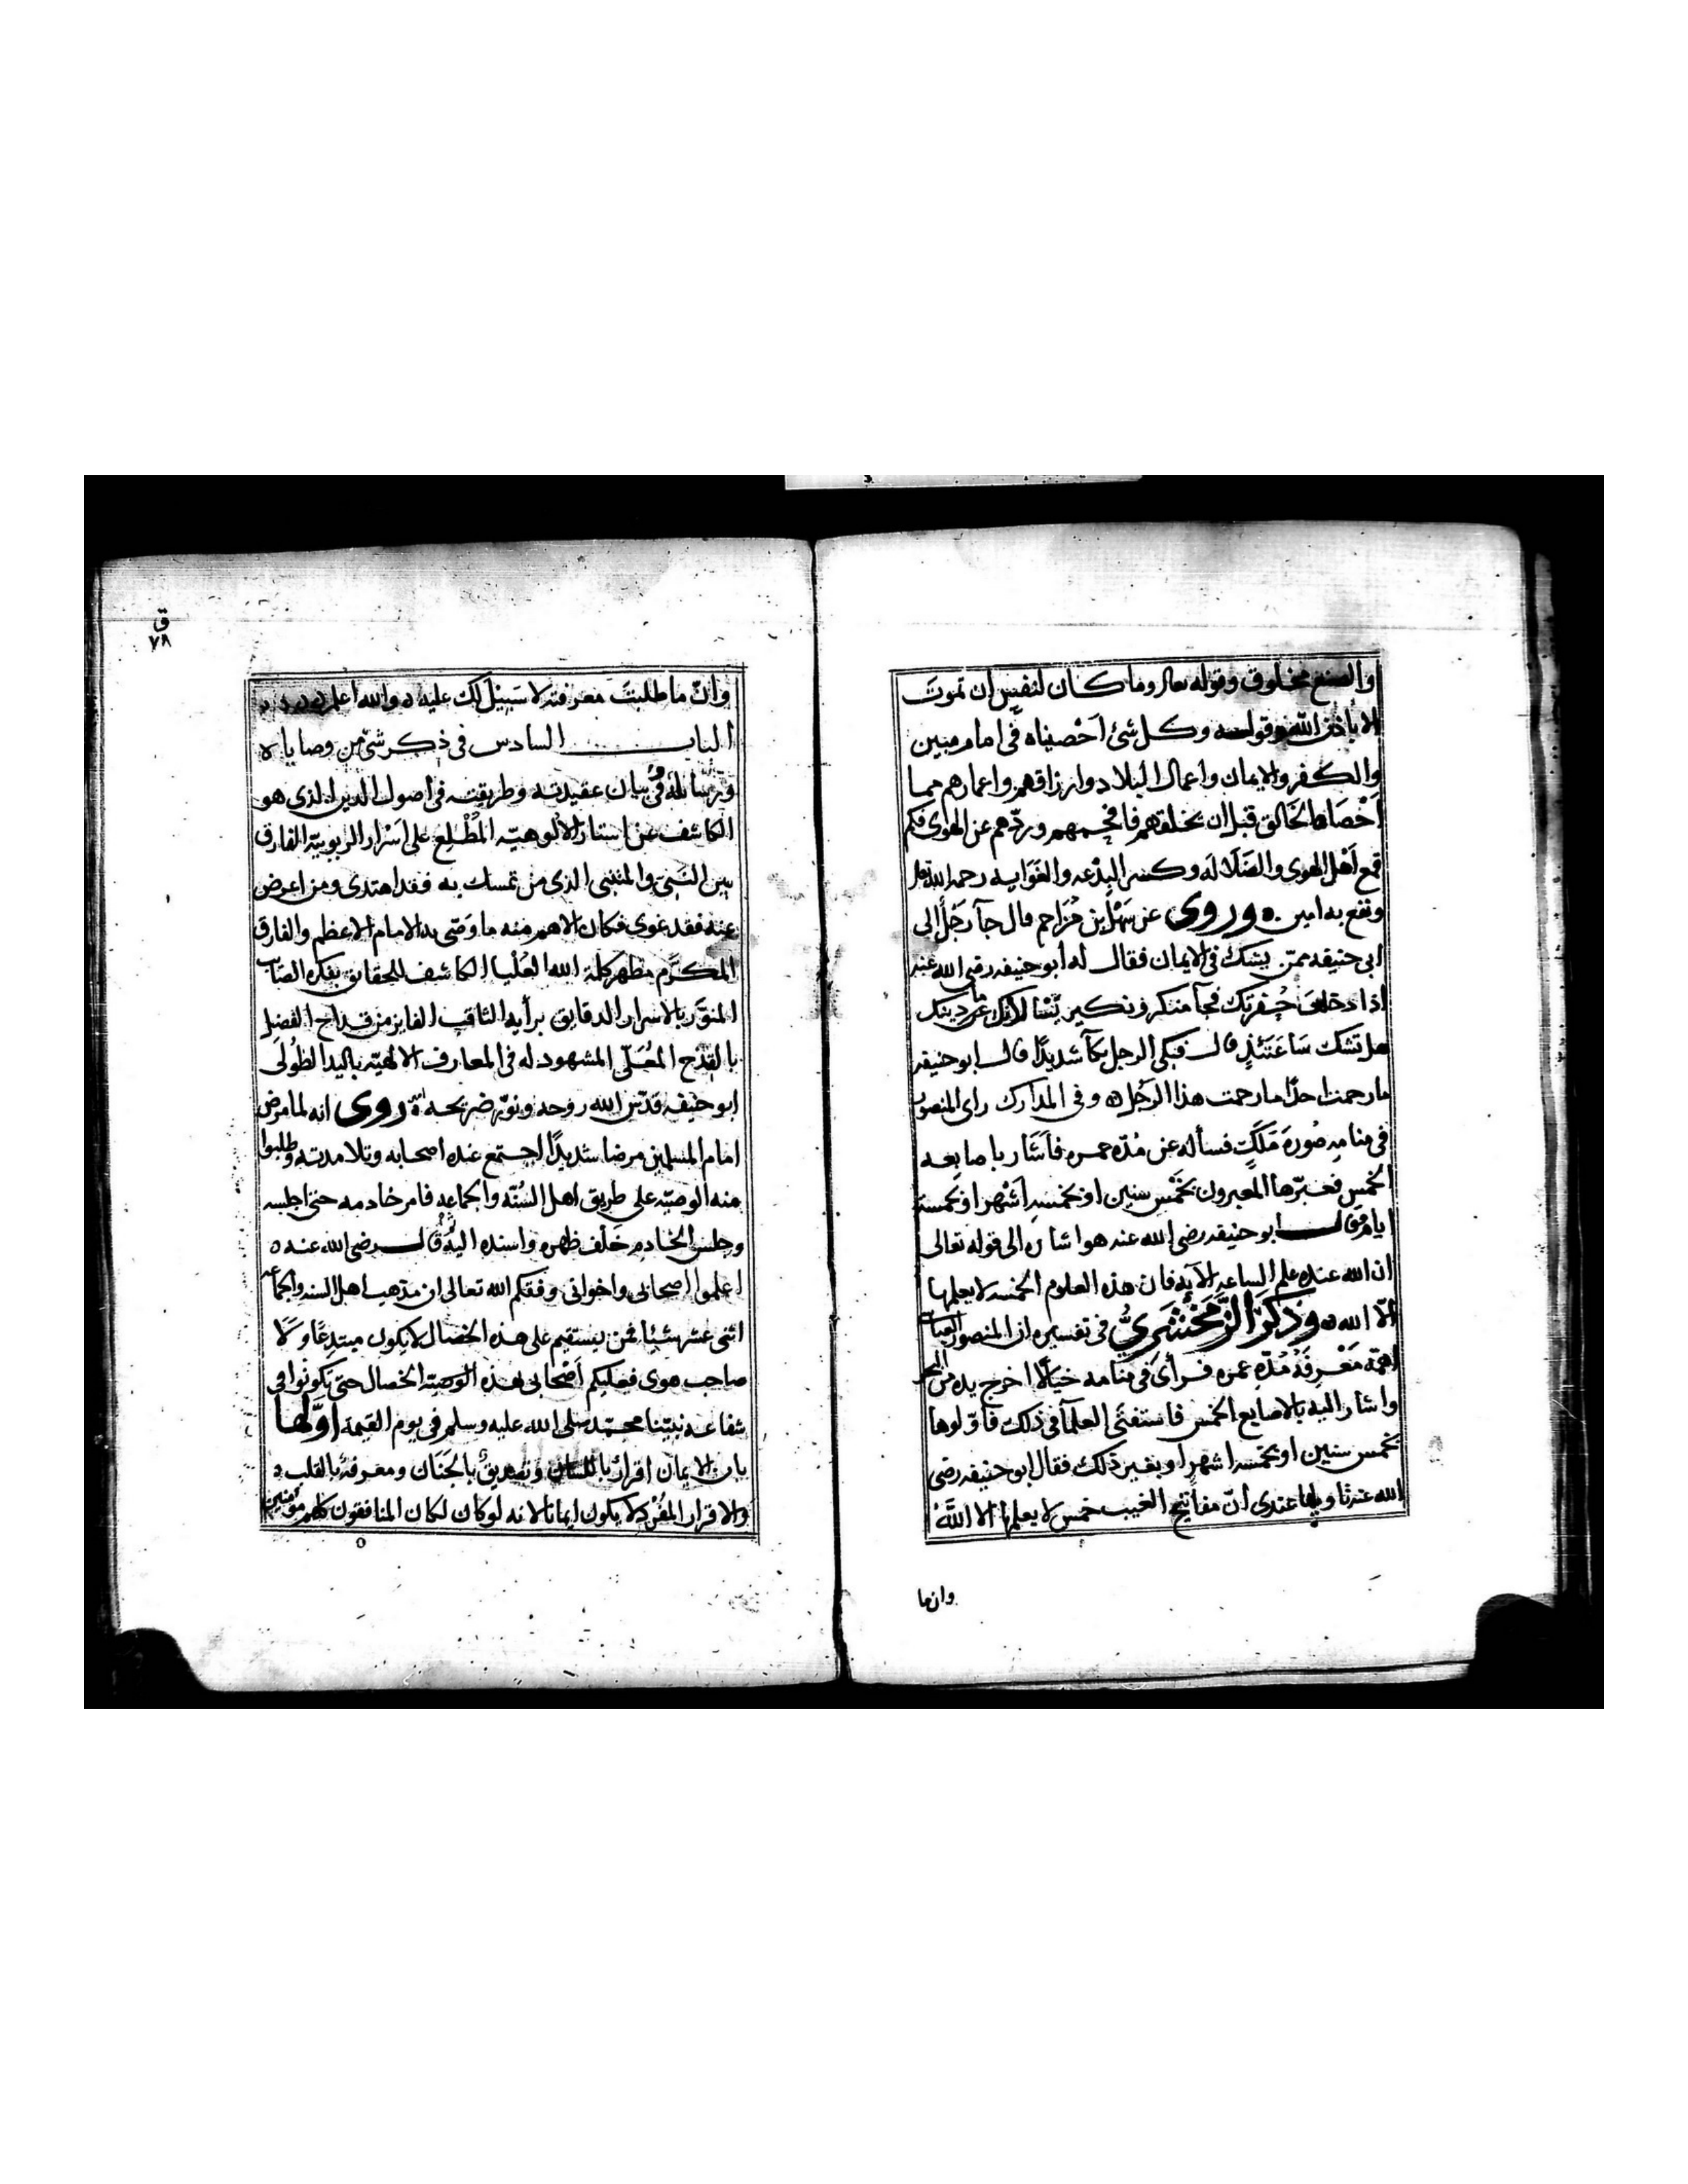 والصنع مخلوق وقوله تعالى وما كان لنفس ان تموت
الا باذن الله وقوله وكل شئ اَحْصيناه فى امام مبين
والكفر والايمان واعمال البلاد وارزاقهم واعمارهم مما
اَحْصَاها الخالق قبل ان يخلقهم فافحمهم وردّهم عن الهوى فكم
قمع اَهْل الهوى والضَلَالَه وكسر البِدْعه والغَوَايه رحمه الله
ونفع به امين ٥ وروى عن سَهْل بن مُزَاحم قال جآ رَجُل الى
ابى حنيفه ممّن يشك فى الايمان فقال له ابو حنيفه رضى الله عنه
اذا دخلت حُفرتك فجآ منكر ونكير يَسْالانك عن دينك
هل تشك سَاعَتَئذٍ قال فبكى الرجل بكآ شديدًا قال ابو حنيفه
ما رحمت احدًا ما رحمت هذا الرَجُل ٥ وفى المدارك راى المنصور
فى منامه صُورة مَلَكٍ فسأله عن مُدّه عمره فاَشَار باصابعه
الخمس فعبّرها المعبرون بخَمْس سنين او بخمسه اَشْهر او بخمسة
ايام فقال ابو حنيفه رضى الله عنه هو اشاره الى قوله تعالى
ان الله عنده علم الساعه الآيه فان هذه العلوم الخمسه لا يعلمها
الّا الله ٥ وذَكَرَ الزَّمَخْشَرِىُّ فى تفسيره ان المنصور
اهمّه مَعْرِفَهُ مُدّهِ عمره فرأى فى منامه خيالًا اخرج يده من البحر
واشار اليه بالاصابع الخمس فاستفتَى العلمآ فى ذلك فاوّلوها
بخمس سنين او بخمسه اشهرٍ او بغير ذلك فقال ابو حنيفه رضى
الله عنه تاويلها عندى انّ مفاتيح الغيب خمس لا يعلمها الا الله
وان ما
ق
٧٨
وانّ ما طلبتَ معرفته لا سَبيل لك عليه ٥ والله اعلم
الباب السادس فى ذكر شئ من وصاياه
ورسَائله فى بيان عقيدته وطريقته فى اصول الدين الذى هو
الكاشف عن استار الالوهيّه المُطْلِع على اَسْرار الربوبيّه الفارق
بين النَبىّ والمتنبى الذى من تمسك به فقد اهتدى ومن اعرض
عنه فقد غوى فكان الاهم منه ما وَصّى به الامام الاعظم والفارق
المكرّم مظهر كلمة الله العُلْيا الكاشف للحقائق بفكره الصائب
المنوّر بالاسرار الدقايق برأيه الثاقب الفايز من قداح الفضل
بالقِدْح المُعَلّى المشهود له فى المعارف الالهيّه باليد الطُولَى
ابو حنيفه قدّس الله روحه ونوّر ضريحه روى انه لما مرض
امام المسلمين مرضا شديدًا اجتمع عنده اصحابه وتلامدته وطلبوا
منه الوصيّه على طريق اهل السُنّه والجماعه فامر خادمه حتى اجلسه
وجلس الخادم خَلْف ظهره واسنده اليه ثُمّ قال رضى الله عنه ٥
اعلموا اصحابى واخوانى وفقكم الله تعالى ان مذهب اهل السنه والجماعه
اثنى عشر شيئا فمن يستقيم على هذه الخصال لا يكون مبتدعًا ولَا
صاحب هوى فعليكم اَصْحابى بهذه الوصيّه الخصال حتى تكونوا فى
شفاعه نبيّنا محمّد صلى الله عليه وسلم فى يوم القيمه اوّلها
بان الايمان اقرار باللسان وتصديقٌ بالجَنَان ومعرفهٌ بالقلب ٥
والاقرار المُفْرد لا يكون ايمانا لانه لو كان لكان المنافقون كلهم مؤمنين